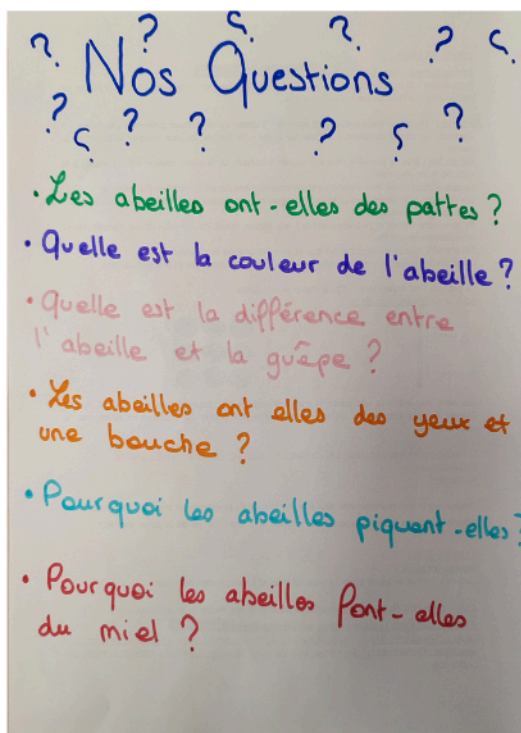 ? ? ? ? ? ?
Nos Questions
? ? ? ? ? ? ?
• Les abeilles ont-elles des pattes ?
• Quelle est la couleur de l'abeille ?
• Quelle est la différence entre
l'abeille et la guêpe ?
• Les abeilles ont elles des yeux et
une bouche ?
• Pourquoi les abeilles piquent-elles ?
• Pourquoi les abeilles font-elles
du miel ?